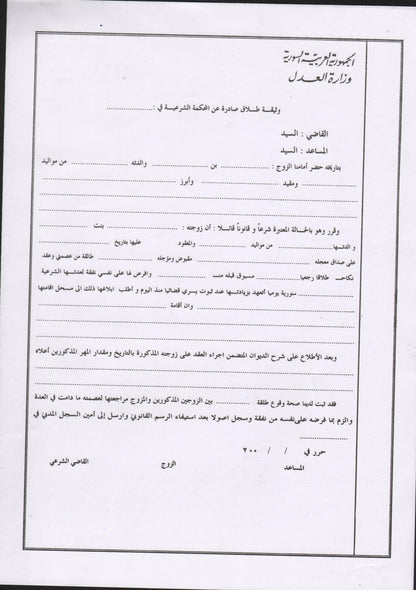 الجمهورية العربية السورية
وزارة العدل
وثيقة طلاق صادرة عن المحكمة الشرعية في : ....................
القاضي : السيد
المساعد : السيد
بتاريخه حضر أمامنا الزوج : .................... بن .................... والدته .................... من مواليد
.................... ومقيد .................... وأبرز ....................
وقرر وهو بالحالة المعتبرة شرعاً و قانوناً قائلا : أن زوجته : .................... بنت ....................
و الدتها .................... من مواليد .................... والمعقود .................... عليها بتاريخ ....................
على صداق معجله .................... مقبوض ومؤجله .................... طالقة من عصمتي وعقد
نكاحي طلاقا رجعيا .................... مسبوق قبله منه .................... وافرض لها على نفسي نفقة لعدتها الشرعية
.................... سورية يوميا أتعهد بزيادتها عند ثبوت يسري قضائيا منذ اليوم و أطلب ابلاغها ذلك الى محل اقامتها
.................... وان أقامة ....................
وبعد الأطلاع على شرح الديوان المتضمن اجراء العقد على زوجته المذكورة بالتاريخ ومقدار المهر المذكورين أعلاه
فقد ثبت لدينا صحة وقوع طلقة .................... بين الزوجين المذكورين والمزوج مراجعتها لعصمته ما دامت في العدة
والزم بما فرضه على نفسه من نفقة وسجل اصولا بعد استيفاء الرسم القانوني وارسل إلى أمين السجل المدني في
....................
حرر في / / ٢٠٠
المساعد الزوج القاضي الشرعي